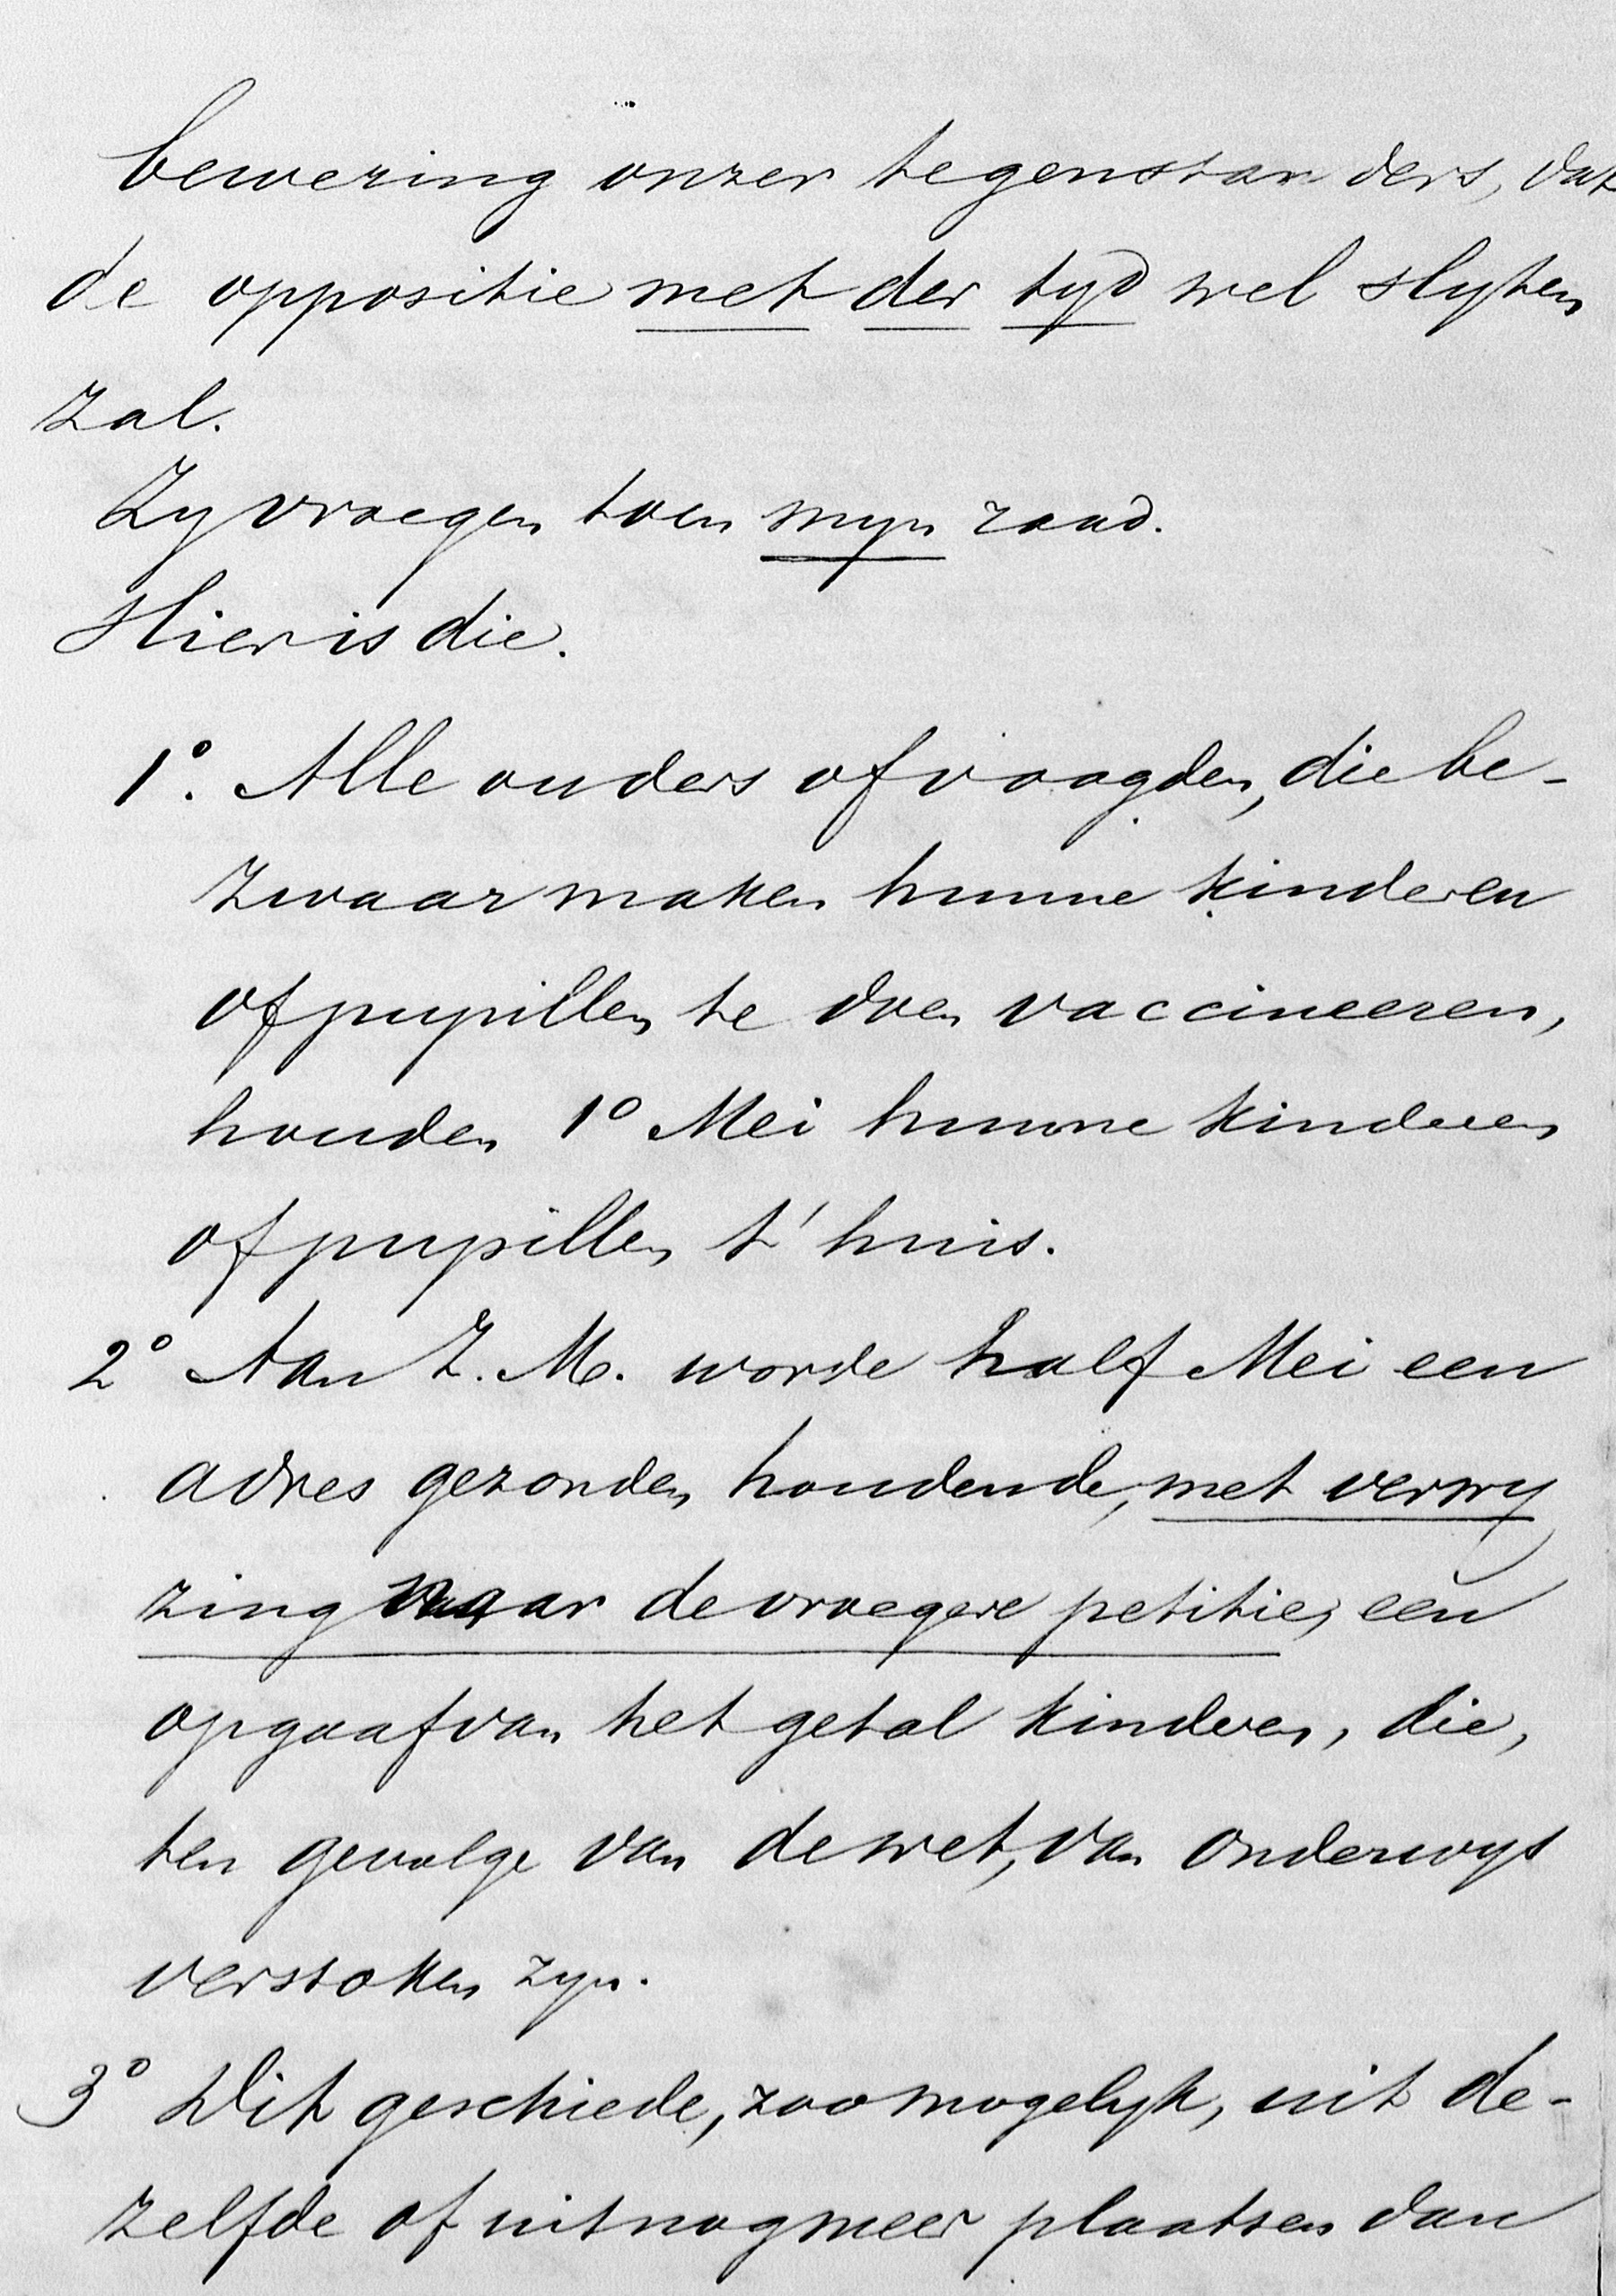 bewering onzer tegenstanders, dat
de oppositie met der tyd wel slyten
zal.
Zy vroegen toen myn raad.
Hier is die.
1o. Alle ouders of voogden, die be-
zwaar maken hunne kinderen
of pupillen te doen vaccineeren,
houden 1o Mei hunne kinderen
of pupillen t'huis.
2o Aan Z. M. worde half Mei een
adres gezonden houdende, met verwy
zing naar de vroegere petitie, een
opgaaf van het getal kinderen, die,
ten gevolge van de wet, van onderwys
verstoken zyn.
3o Dit geschiede, zoo mogelyk, uit de-
zelfde of uit nog meer plaatsen dan